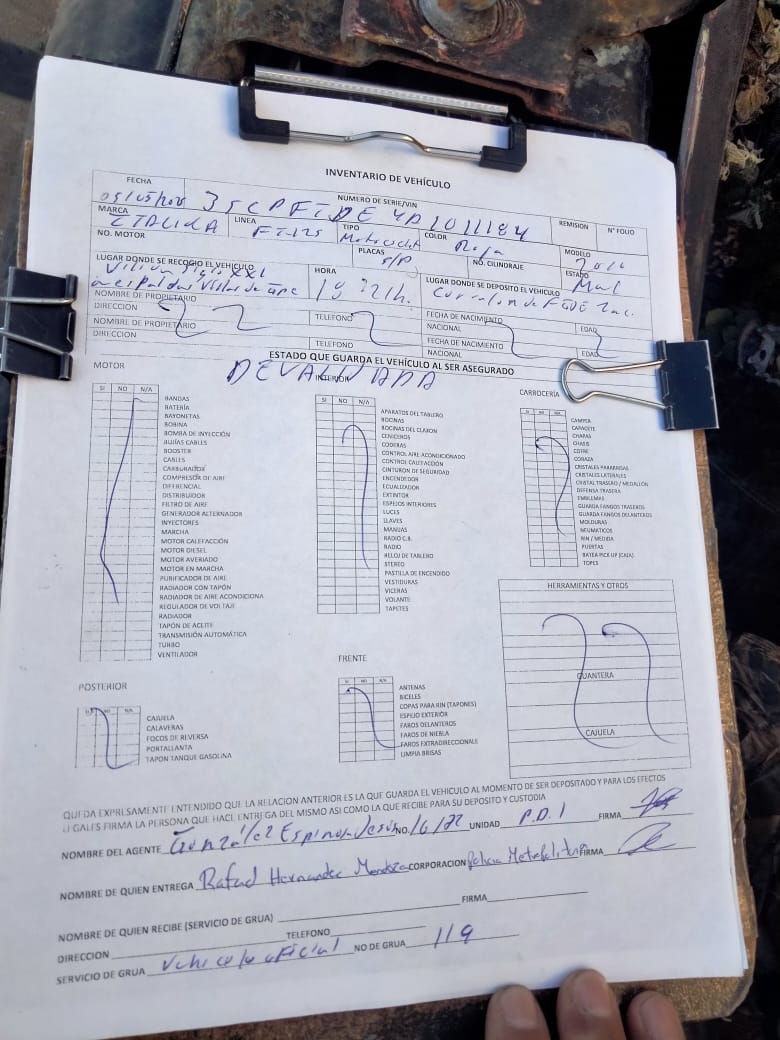 INVENTARIO DE VEHÍCULO
FECHA NUMERO DE SERIE/VIN REMISION N° FOLIO
3SCPFTDE
MARCA ITALIKA LINEA FT125 TIPO Motocicleta COLOR Roja MODELO
NO. MOTOR PLACAS S/P NO. CILINDRAJE ESTADO Mal
LUGAR DONDE SE RECOGIO EL VEHÍCULO HORA 18:21h. LUGAR DONDE SE DEPOSITO EL VEHÍCULO
Siglo XXI
NOMBRE DE PROPIETARIO TELEFONO FECHA DE NACIMIENTO
DIRECCIÓN NACIONAL EDAD
NOMBRE DE PROPIETARIO TELEFONO FECHA DE NACIMIENTO
DIRECCION NACIONAL EDAD
ESTADO QUE GUARDA EL VEHÍCULO AL SER ASEGURADO
DEVALIJADA
MOTOR
SI NO N/A
BANDAS
BATERÍA
BAYONETAS
BOBINA
BOMBA DE INYECCIÓN
BUJÍAS CABLES
BOOSTER
CABLES
CARBURADOR
COMPRESOR DE AIRE
DIFRENCIAL
DISTRIBUIDOR
FILTRO DE AIRE
GENERADOR ALTERNADOR
INYECTORES
MARCHA
MOTOR CALEFACCIÓN
MOTOR DIESEL
MOTOR AVERIADO
MOTOR EN MARCHA
PURIFICADOR DE AIRE
RADIADOR CON TAPÓN
RADIADOR DE AIRE ACONDICIONA
REGULADOR DE VOLTAJE
RADIADOR
TAPÓN DE ACEITE
TRANSMISIÓN AUTOMÁTICA
TURBO
VENTILADOR
INTERIOR
SI NO N/A
APARATOS DEL TABLERO
BOCINAS
BOCINAS DEL CLAXON
CENICEROS
CODERAS
CONTROL AIRE ACONDICIONADO
CONTROL CALEFACCIÓN
CINTURON DE SEGURIDAD
ENCENDEDOR
ECUALIZADOR
EXTINTOR
ESPEJOS INTERIORES
LUCES
LLAVES
MANIJAS
RADIO C.B.
RADIO
RELOJ DE TABLERO
STEREO
PASTILLA DE ENCENDIDO
VESTIDURAS
VICERAS
VOLANTE
TAPETES
CARROCERÍA
SI NO N/A
CAMPER
CAPACETE
CHAPAS
CHASIS
COFRE
CORAZA
CRISTALES PARABRISAS
CRISTALES LATERALES
CRISTAL TRASERO / MEDALLÓN
DEFENSA TRASERA
EMBLEMAS
GUARDA FANGOS TRASEROS
GUARDA FANGOS DELANTEROS
MOLDURAS
NEUMATICOS
RIN / MEDIDA
PUERTAS
BATEA PICK UP (CAJA)
TOPES
HERRAMIENTAS Y OTROS
GUANTERA
CAJUELA
POSTERIOR
CAJUELA
CALAVERAS
FOCOS DE REVERSA
PORTALLANTA
TAPON TANQUE GASOLINA
FRENTE
SI NO N/A
ANTENAS
BICELES
COPAS PARA RIN (TAPONES)
ESPEJO EXTERIOR
FAROS DELANTEROS
FAROS DE NIEBLA
FAROS EXTRADIRECCIONALE
LIMPIA BRISAS
QUEDA EXPRESAMENTE ENTENDIDO QUE LA RELACION ANTERIOR ES LA QUE GUARDA EL VEHICULO AL MOMENTO DE SER DEPOSITADO Y PARA LOS EFECTOS
LEGALES FIRMA LA PERSONA QUE HACE ENTREGA DEL MISMO ASI COMO LA QUE RECIBE PARA SU DEPOSITO Y CUSTODIA
NOMBRE DEL AGENTE González Espinoza Jesús NO. UNIDAD P.D.I FIRMA
NOMBRE DE QUIEN ENTREGA Rafael Hernandez Mendoza CORPORACION Policia Metropolitana FIRMA
NOMBRE DE QUIEN RECIBE (SERVICIO DE GRUA) FIRMA
DIRECCION TELEFONO
SERVICIO DE GRUA Vehiculo oficial NO DE GRUA 119